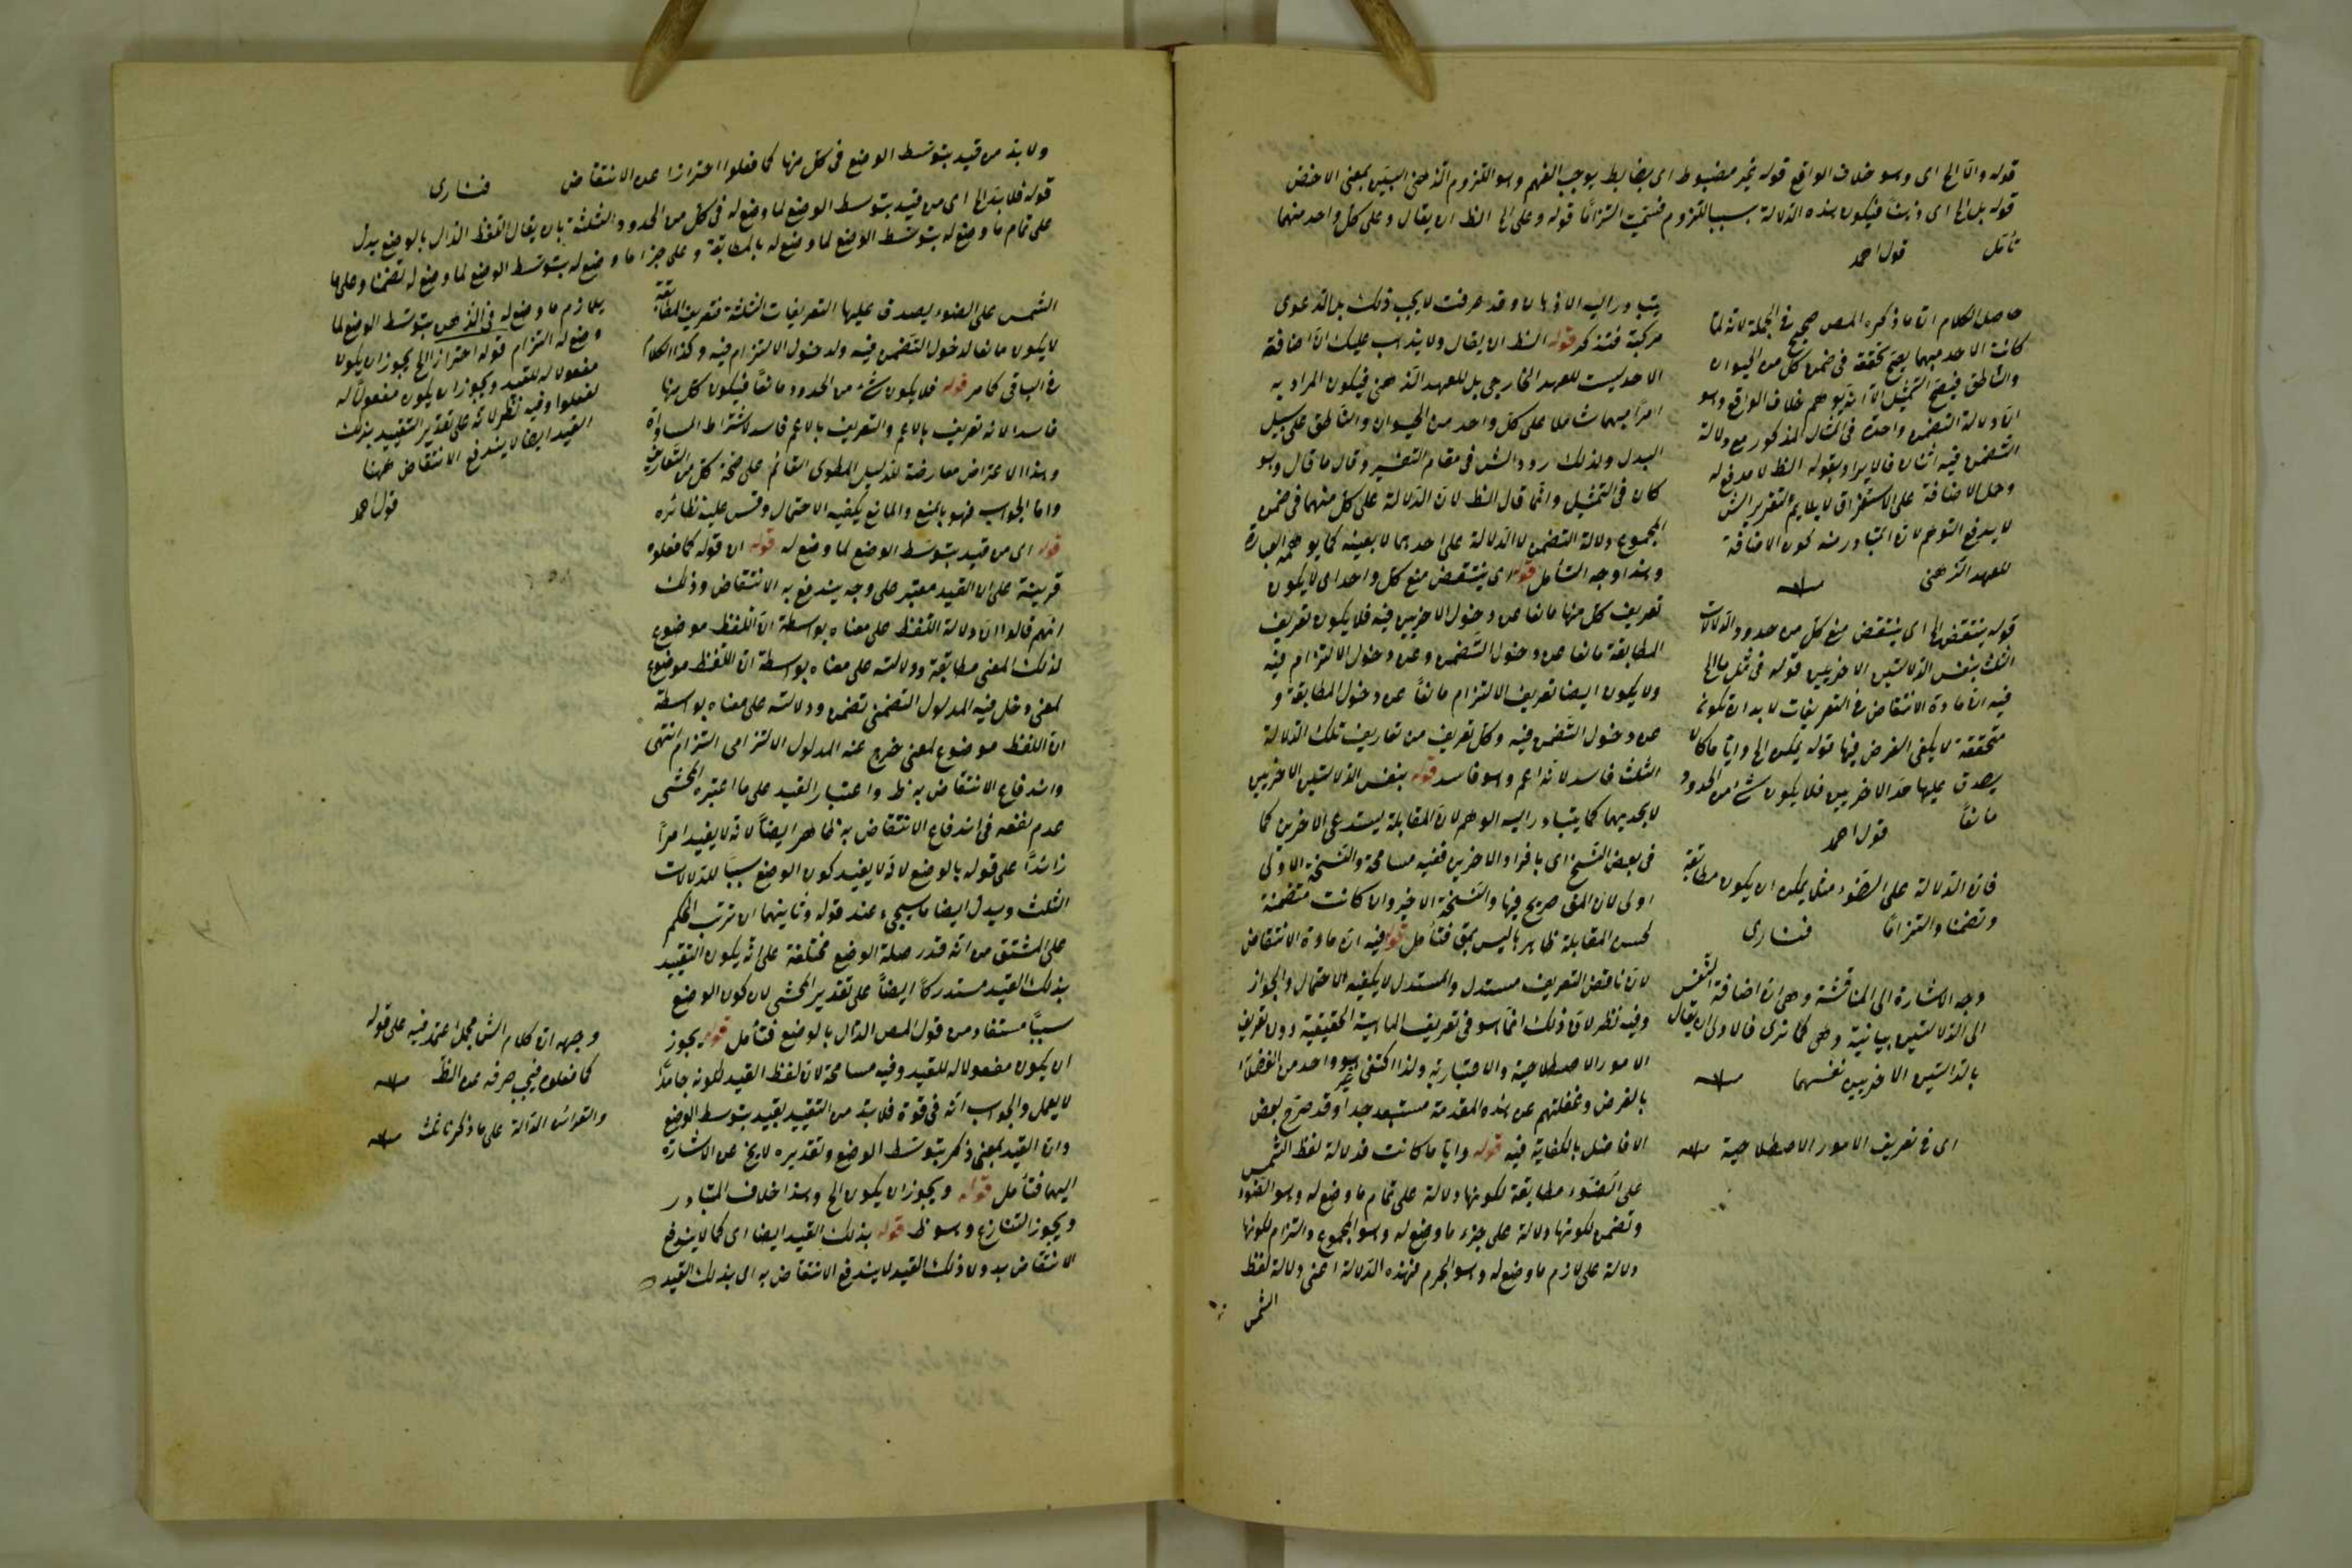 قوله والا الخ اى وهو خلاف الواقع قوله غير مضبوط اى بضابط يوجب الفهم وهو اللزوم الذهنى البين بمعنى الاخص
قوله بل الخ اى ذهنا فيكون هذه الدلالة بسبب اللزوم فسميت التزاما قوله وعلى الخ الظ ان يقال وعلى كل واحد منهما
تأمل قول احمد
يتبادر اليه الاذهان وقد عرفت لا يجب ذلك بل الدعوى
مركبة فتذكر قوله الظ ان يقال ولا يذهب عليك ان اضافة
الاحد ليست للعهد الخارجى بل للعهد الذهنى فيكون المراد به
امرا مبهما شاملا على كل واحد من الحيوان والناطق على سبيل
البدل ولذلك ردد الش فى مقام التفسير وقال ما قال وهو
كان فى التمثيل وانما قال الظ لان الدلالة على كل منهما فى ضمن
المجموع دلالة التضمن لا الدلالة على احدهما لا بعينه كما يوهمه العبارة
وهذا وجه التأمل قوله اى ينتقض منع كل واحد اى لا يكون
تعريف كل منها مانعا عن دخول الاخريين فيه فلا يكون تعريف
المطابقة مانعا عن دخول التضمن وعن دخول الالتزام فيه
ولا يكون ايضا تعريف الالتزام مانعا عن دخول المطابقة و
عن دخول التضمن فيه وكل تعريف من تعاريف تلك الدلالة
الثلث فاسد لانه اعم وهو فاسد قوله بنفس الدلالتين الاخريين
لا بحديهما كما يتبادر اليه الوهم لان المقابلة يستدعى الاخرين كما
فى بعض النسخ اى بافراد الاخرين ففيه مسامحة والنسخة الاولى
اولى لان المق صريح فيها والنسخة الاخير وان كانت متضمنة
لحسن المقابلة ظاهرها ليس بمق فتأمل قوله فيه ان مادة الانتقاض
لان ناقض التعريف مستدل والمستدل لا يكفيه الاحتمال والجواز
وفيه نظر لان ذلك انما هو فى تعريف الماهية الحقيقية دون تعريف
الامور الاصطلاحية والاعتبارية ولذا اكتفى غير واحد من الفضلاء
بالفرض وغفلتهم عن هذه المقدمة مستبعد جدا وقد صرح بعض
الافاضل بالكفاية فيه قوله وايا ما كانت فدلالة لفظ الشمس
على الضوء مطابقة لكونها دلالة على تمام ما وضع له وهو الضوء
وتضمن لكونها دلالة على جزء ما وضع له وهو المجموع والتزام لكونها
دلالة على لازم ما وضع له وهو الجرم فهذه الدلالة اعنى دلالة لفظ
الشمس
حاصل الكلام ان ما ذكره المص صحيح فى الجملة لانه لما
كانت الاحد مبهما يصح تحققه فى ضمن كل من الحيوان
والناطق فيصح التمثيل الا انه يوهم خلاف الواقع وهو
ان دلالة التضمن واحدة فى المثال المذكور مع دلالة
التضمن فيه اثنان فالايراد بقوله الظ لا مدفع له
وحمل الاضافة على الاستغراق لا يلايم التقرير الش
لا يدفع التوهم لان المتبادر منه كون الاضافة
للعهد الذهنى منه
قوله ينتقض الخ اى ينتقض منع كل من حدود الدلالات
الثلث بنفس الدلالتين الاخريين قوله فى مثل ما الخ
فيه ان مادة الانتقاض فى التعريفات لا بد ان تكون
متحققة لا يكفى الفرض فيها قوله يمكن الخ وايا ما كان
يصدق عليها حد الاخريين فلا يكون شئ من الحدود
مانعا قول احمد
فان الدلالة على الضوء مثلا يمكن ان يكون مطابقة
وتضمنا والتزاما فنارى
وجه الاشارة الى المناقشة وهى ان اضافة النفس
الى الدلالتين بيانية وهى كما ترى فالاولى ان يقال
بالدلالتين الاخريين نفسهما منه
اى فى تعريف الامور الاصطلاحية منه
ولا بد من قيد بتوسط الوضع فى كل منها كما فعلوا احترازا عن الانتقاض فنارى
قوله فلا بد الخ اى من قيد بتوسط الوضع لما وضع له فى كل من الحدود الثلثة بان يقال اللفظ الدال بالوضع يدل
على تمام ما وضع له بتوسط الوضع لما وضع له بالمطابقة وعلى جزء ما وضع له بتوسط الوضع لما وضع له تضمنا وعلى ما
يلازم ما وضع له فى الذهن بتوسط الوضع لما
وضع له التزام قوله احتراز الخ يجوز ان يكون
مفعولا له للقيد ويجوز ان يكون مفعولا له
لفعلوا وفيه نظر لانه على تقدير التقييد بذلك
القيد ايضا لا يندفع الانتقاض ههنا
قول احمد
الشمس على الضوء يصدق عليها التعريفات الثلثة فتعريف المطابقة
لا يكون مانعا لدخول التضمن فيه ولدخول الالتزام فيه وكذا الكلام
فى الباقى كما مر قوله فلا يكون شئ من الحدود مانعا فيكون كل منها
فاسدا لانه تعريف بالاعم والتعريف بالاعم فاسد لاشتراط المساواة
وهذا الاعتراض معارضة للدليل المطوى القائم على صحة كل من التعاريف
واما الجواب فهو بالمنع والمانع يكفيه الاحتمال وقس عليه نظائره
قوله اى من قيد بتوسط الوضع لما وضع له قوله ان قوله كما فعلوه
قرينة على ان القيد معتبر على وجه يندفع به الانتقاض وذلك
انهم قالوا ان دلالة اللفظ على معناه بواسطة ان اللفظ موضوع
لذلك المعنى مطابقة ودلالته على معناه بواسطة ان اللفظ موضوع
لمعنى دخل فيه المدلول التضمنى تضمن ودلالته على معناه بواسطة
ان اللفظ موضوع لمعنى خرج عنه المدلول الالتزامى التزام انتهى
واندفاع الانتقاض به ظ واعتبار القيد على ما اعتبره المحشى
عدم نفعه فى اندفاع الانتقاض به ظاهر ايضا لانه لا يفيد امرا
زائدا على قوله بالوضع لانه لا يفيد كون الوضع سببا للدلالات
الثلث ويدل ايضا ما سيجئ عند قوله وثانيهما ان ترتب الحكم
على المشتق من انه قدر صلة الوضع مختلفة على انه يكون التقييد
بذلك القيد مستدركا ايضا على تقدير المحشى لان كون الوضع
سببا مستفاد من قول المص الدال بالوضع فتأمل قوله يجوز
ان يكون مفعولا له للقيد وفيه مسامحة لان لفظ القيد لكونه جامدا
لا يعمل والجواب انه فى قوة فلا بد من التقييد بقيد بتوسط الوضع
وان القيد بمعنى ذكر بتوسط الوضع وتقديره لايخ عن الاشارة
اليهما فتأمل قوله ويجوز ان يكون الخ وهذا خلاف المتبادر
ويجوز التنازع وهو ظ قوله بذلك القيد ايضا اى كما لا يندفع
الانتقاض بدون ذلك القيد لا يندفع الانتقاض به اى بذلك القيد
وجهه ان كلام الش مجمل اعتمد فيه على قوله
كما فعلوه فيجب صرفه عن الظ منه
والقرائن الدالة على ما ذكرنا ثلث منه